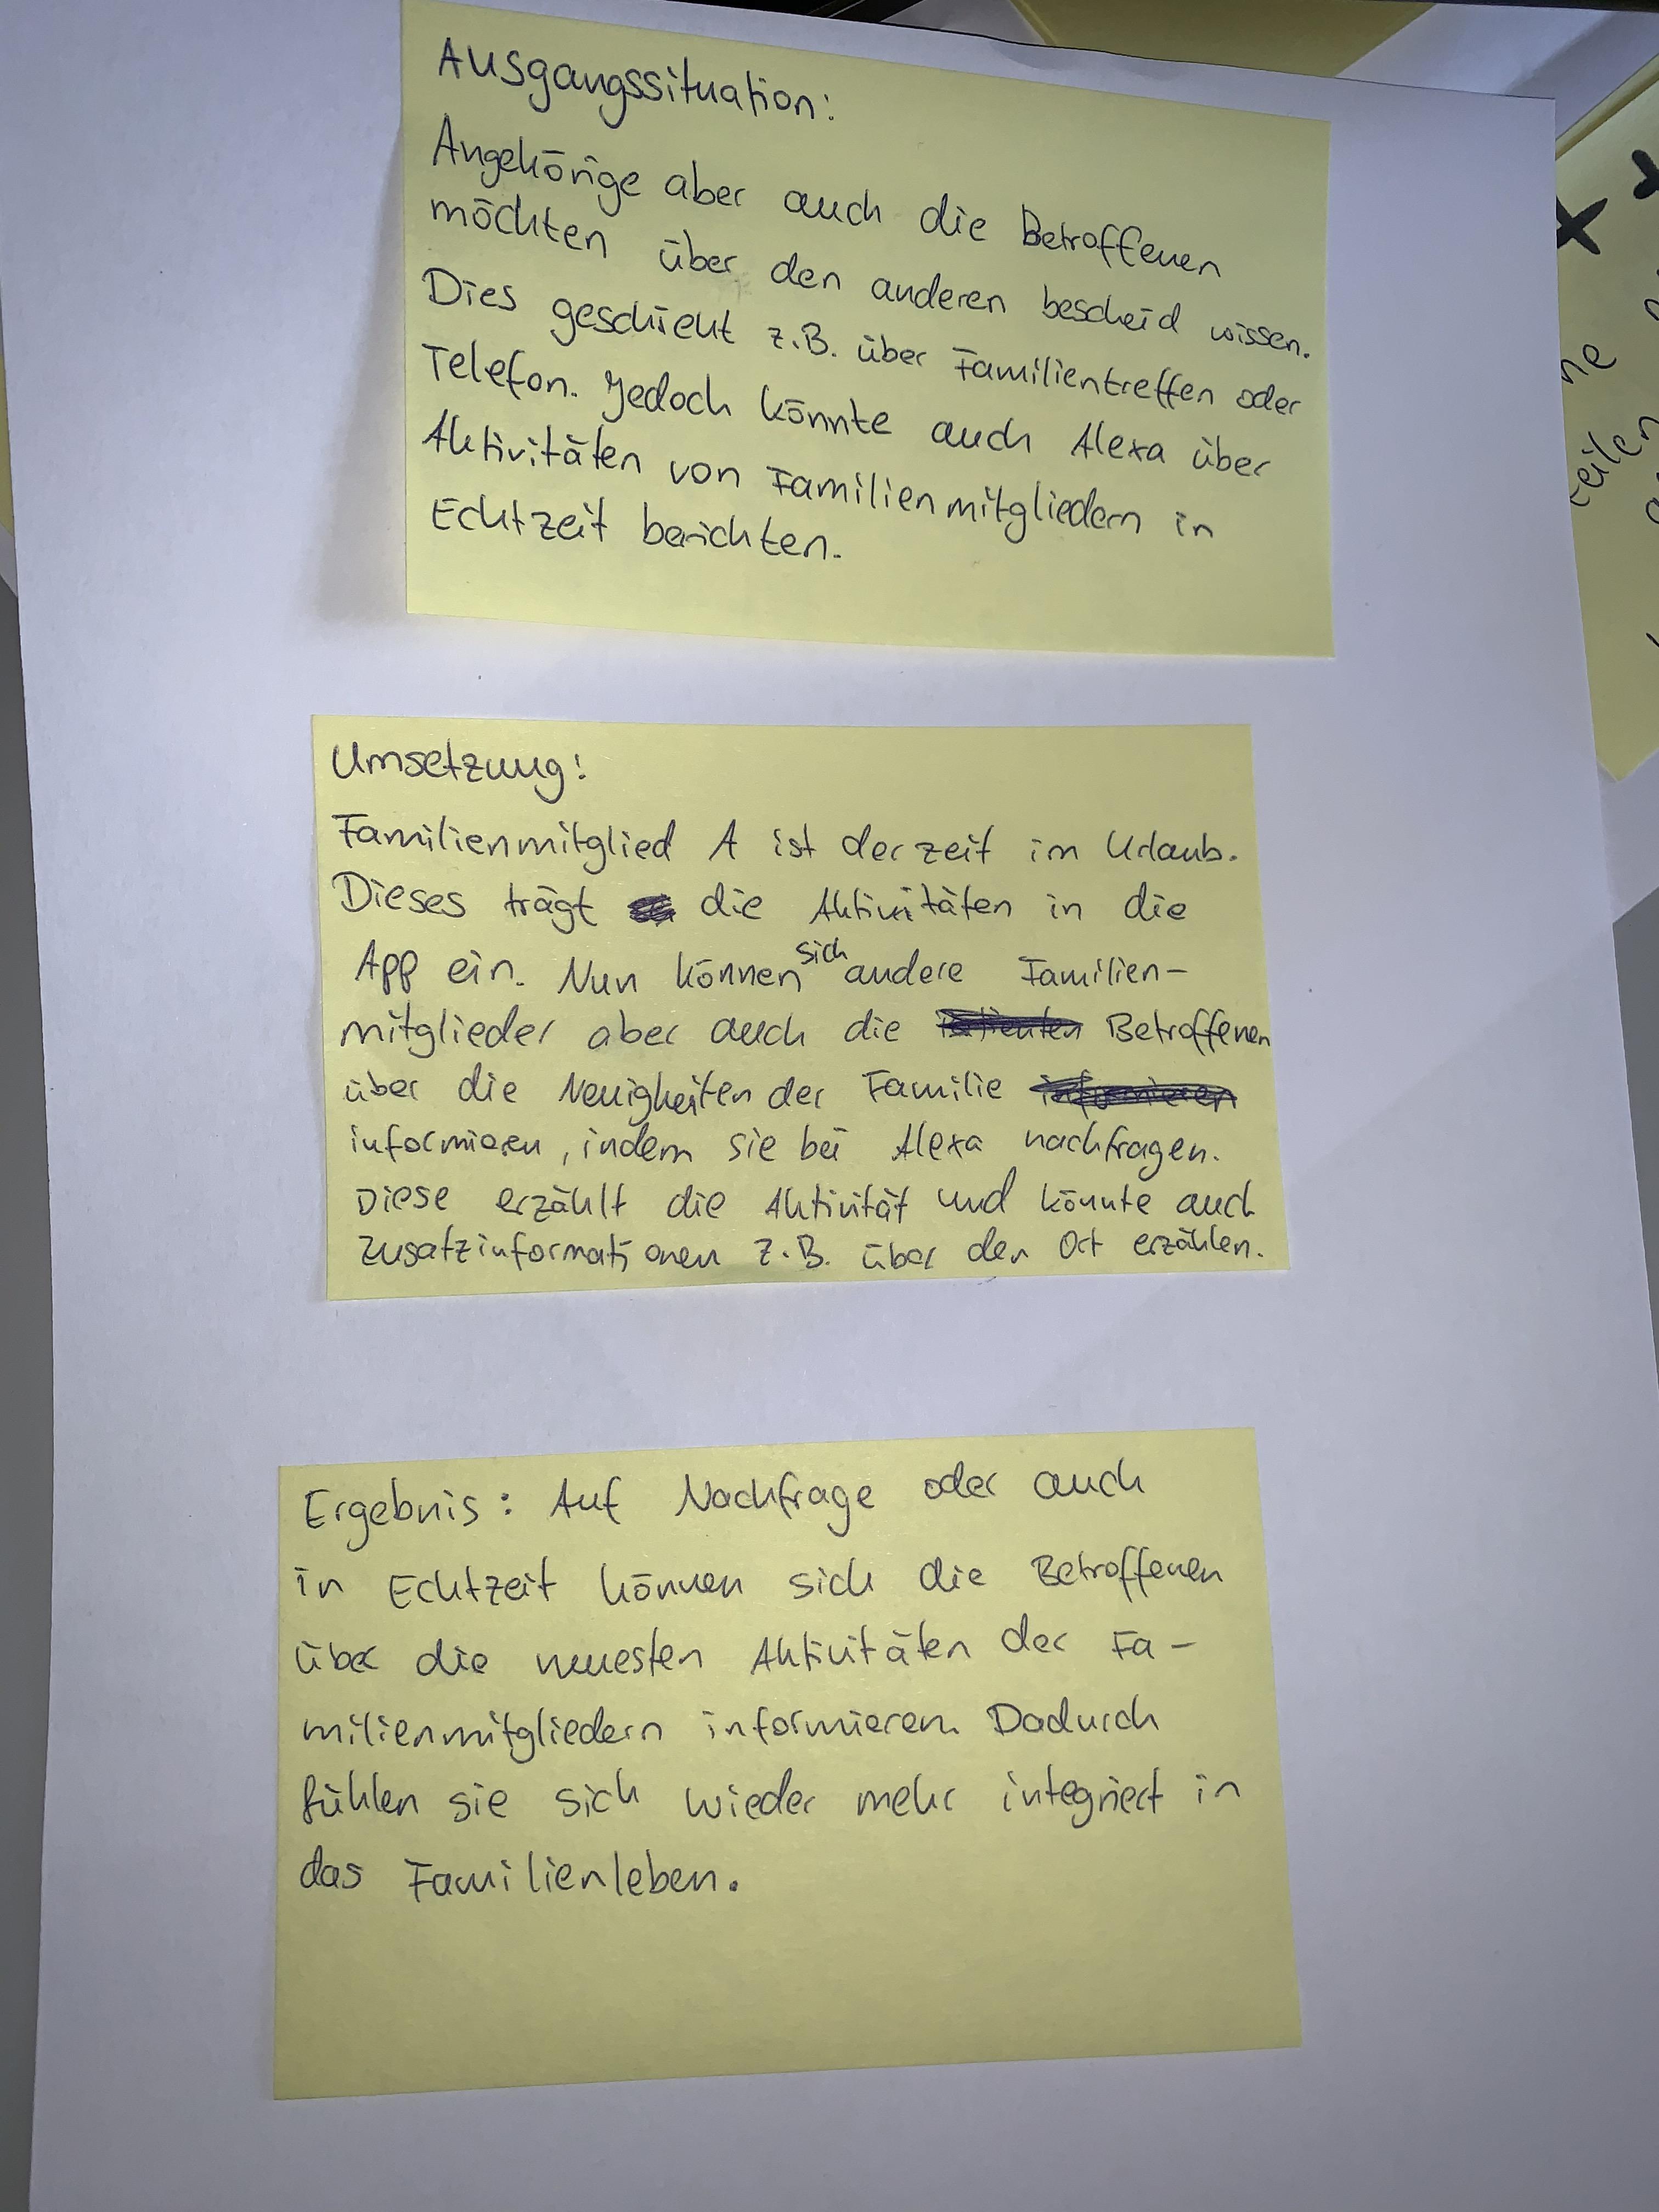 Ausgangssituation:
Angehörige aber auch die Betroffenen
möchten über den anderen bescheid wissen.
Dies geschieht z.B. über Familientreffen oder
Telefon. Jedoch könnte auch Alexa über
Aktivitäten von Familienmitgliedern in
Echtzeit berichten.
Umsetzung:
Familienmitglied A ist derzeit im Urlaub.
Dieses trägt die Aktivitäten in die
App ein. Nun können sich andere Familien-
mitglieder aber auch die Betroffenen
über die Neuigkeiten der Familie
informieren, indem sie bei Alexa nachfragen.
Diese erzählt die Aktivität und könnte auch
Zusatzinformationen z.B. über den Ort erzählen.
Ergebnis: Auf Nachfrage oder auch
in Echtzeit können sich die Betroffenen
über die neuesten Aktivitäten der Fa-
milienmitgliedern informieren. Dadurch
fühlen sie sich wieder mehr integriert in
das Familienleben.